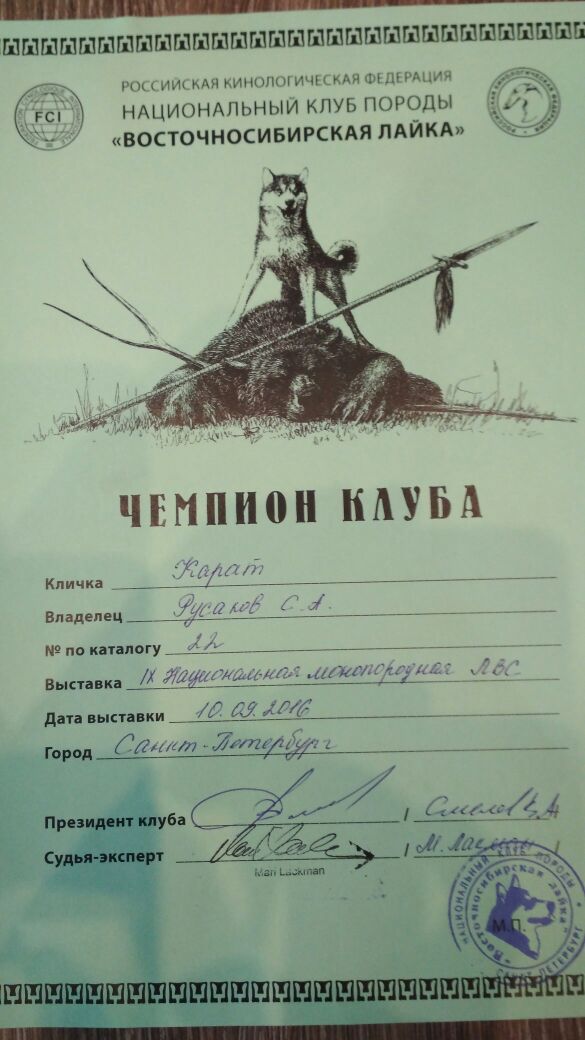 РОССИЙСКАЯ КИНОЛОГИЧЕСКАЯ ФЕДЕРАЦИЯ
НАЦИОНАЛЬНЫЙ КЛУБ ПОРОДЫ
«ВОСТОЧНОСИБИРСКАЯ ЛАЙКА»
FCI
ЧЕМПИОН КЛУБА
Кличка Карат
Владелец Русаков С.А.
№ по каталогу 22
Выставка IX Национальная монопородная ЛВС
Дата выставки 10.09.2016
Город Санкт-Петербург
Президент клуба /
Судья-эксперт / М. Ласман /
Mari Lackman
М.П.
НАЦИОНАЛЬНЫЙ КЛУБ ПОРОДЫ
"Восточносибирская лайка"
САНКТ-ПЕТЕРБУРГ